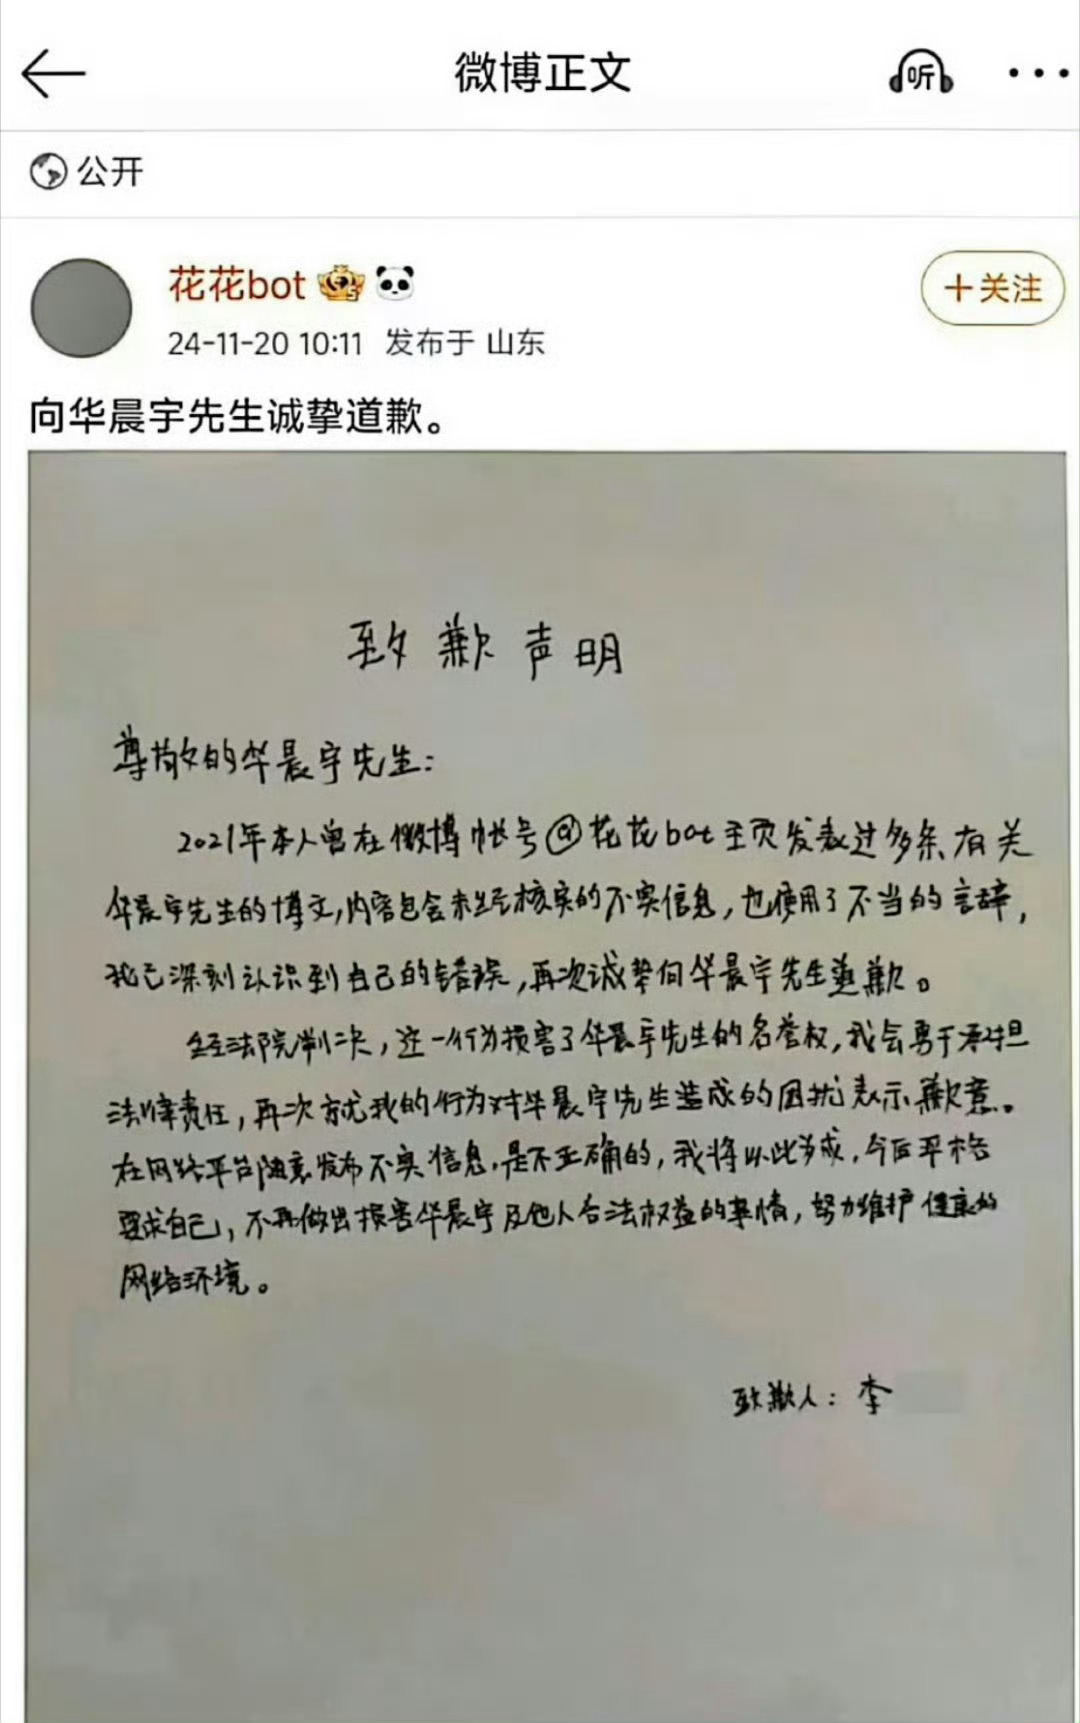 微博正文
听
公开
花花bot
+关注
24-11-20 10:11 发布于 山东
向华晨宇先生诚挚道歉。
致歉声明
尊敬的华晨宇先生:
2021年本人曾在微博帐号@花花bot主页发表过多条有关
华晨宇先生的博文,内容包含未经核实的不实信息,也使用了不当的言辞,
我已深刻认识到自己的错误,再次诚挚向华晨宇先生道歉。
经法院判决,这一行为损害了华晨宇先生的名誉权,我会勇于承担
法律责任,再次就我的行为对华晨宇先生造成的困扰表示歉意。
在网络平台随意发布不实信息,是不正确的,我将以此为戒,今后严格
要求自己,不再做出损害华晨宇及他人合法权益的事情,努力维护健康的
网络环境。
致歉人:李